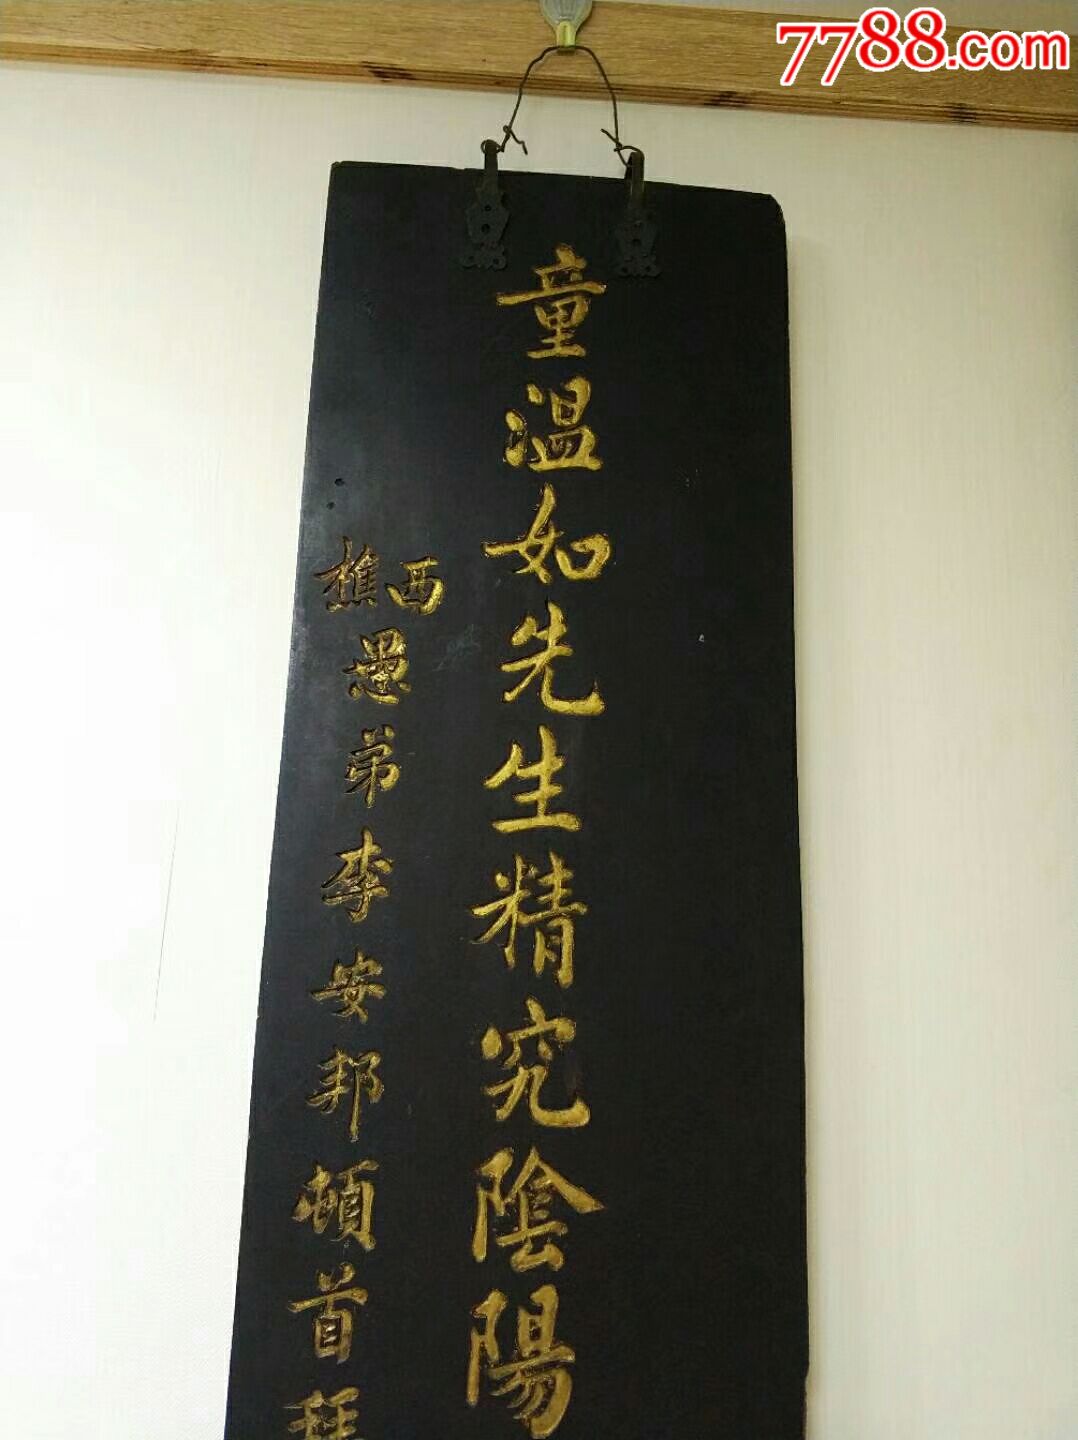 7788.com
童溫如先生精究陰陽
西樵
愚弟李安邦頓首拜